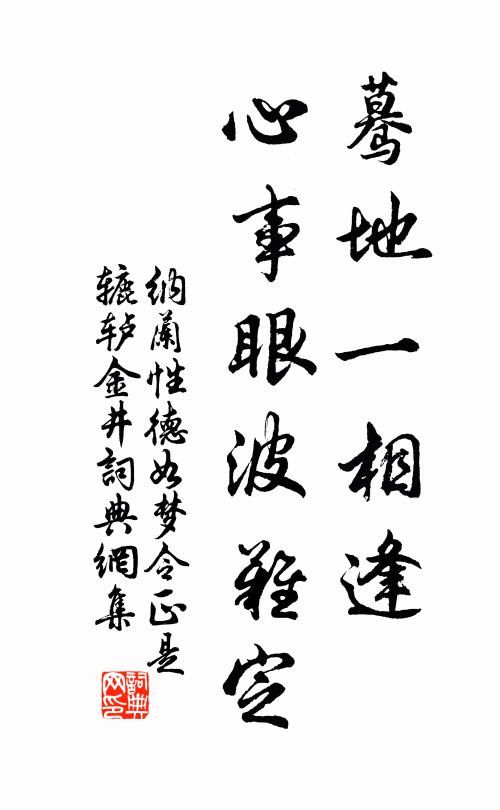 蓦地一相逢
心事眼波難定
納蘭性德如梦令正是
辘轳金井詞典網集
詞典网印